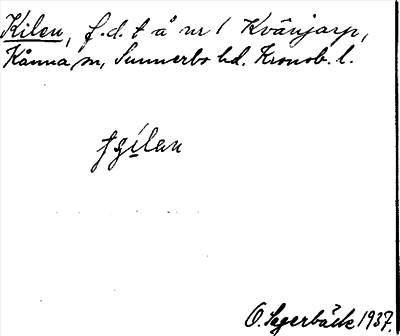 Kilen, f.d. t å nr 1 Kvänjarp,
Kånna sn, Sunnerbo hd. Kronob. l.
O. Segerbäck 1937.